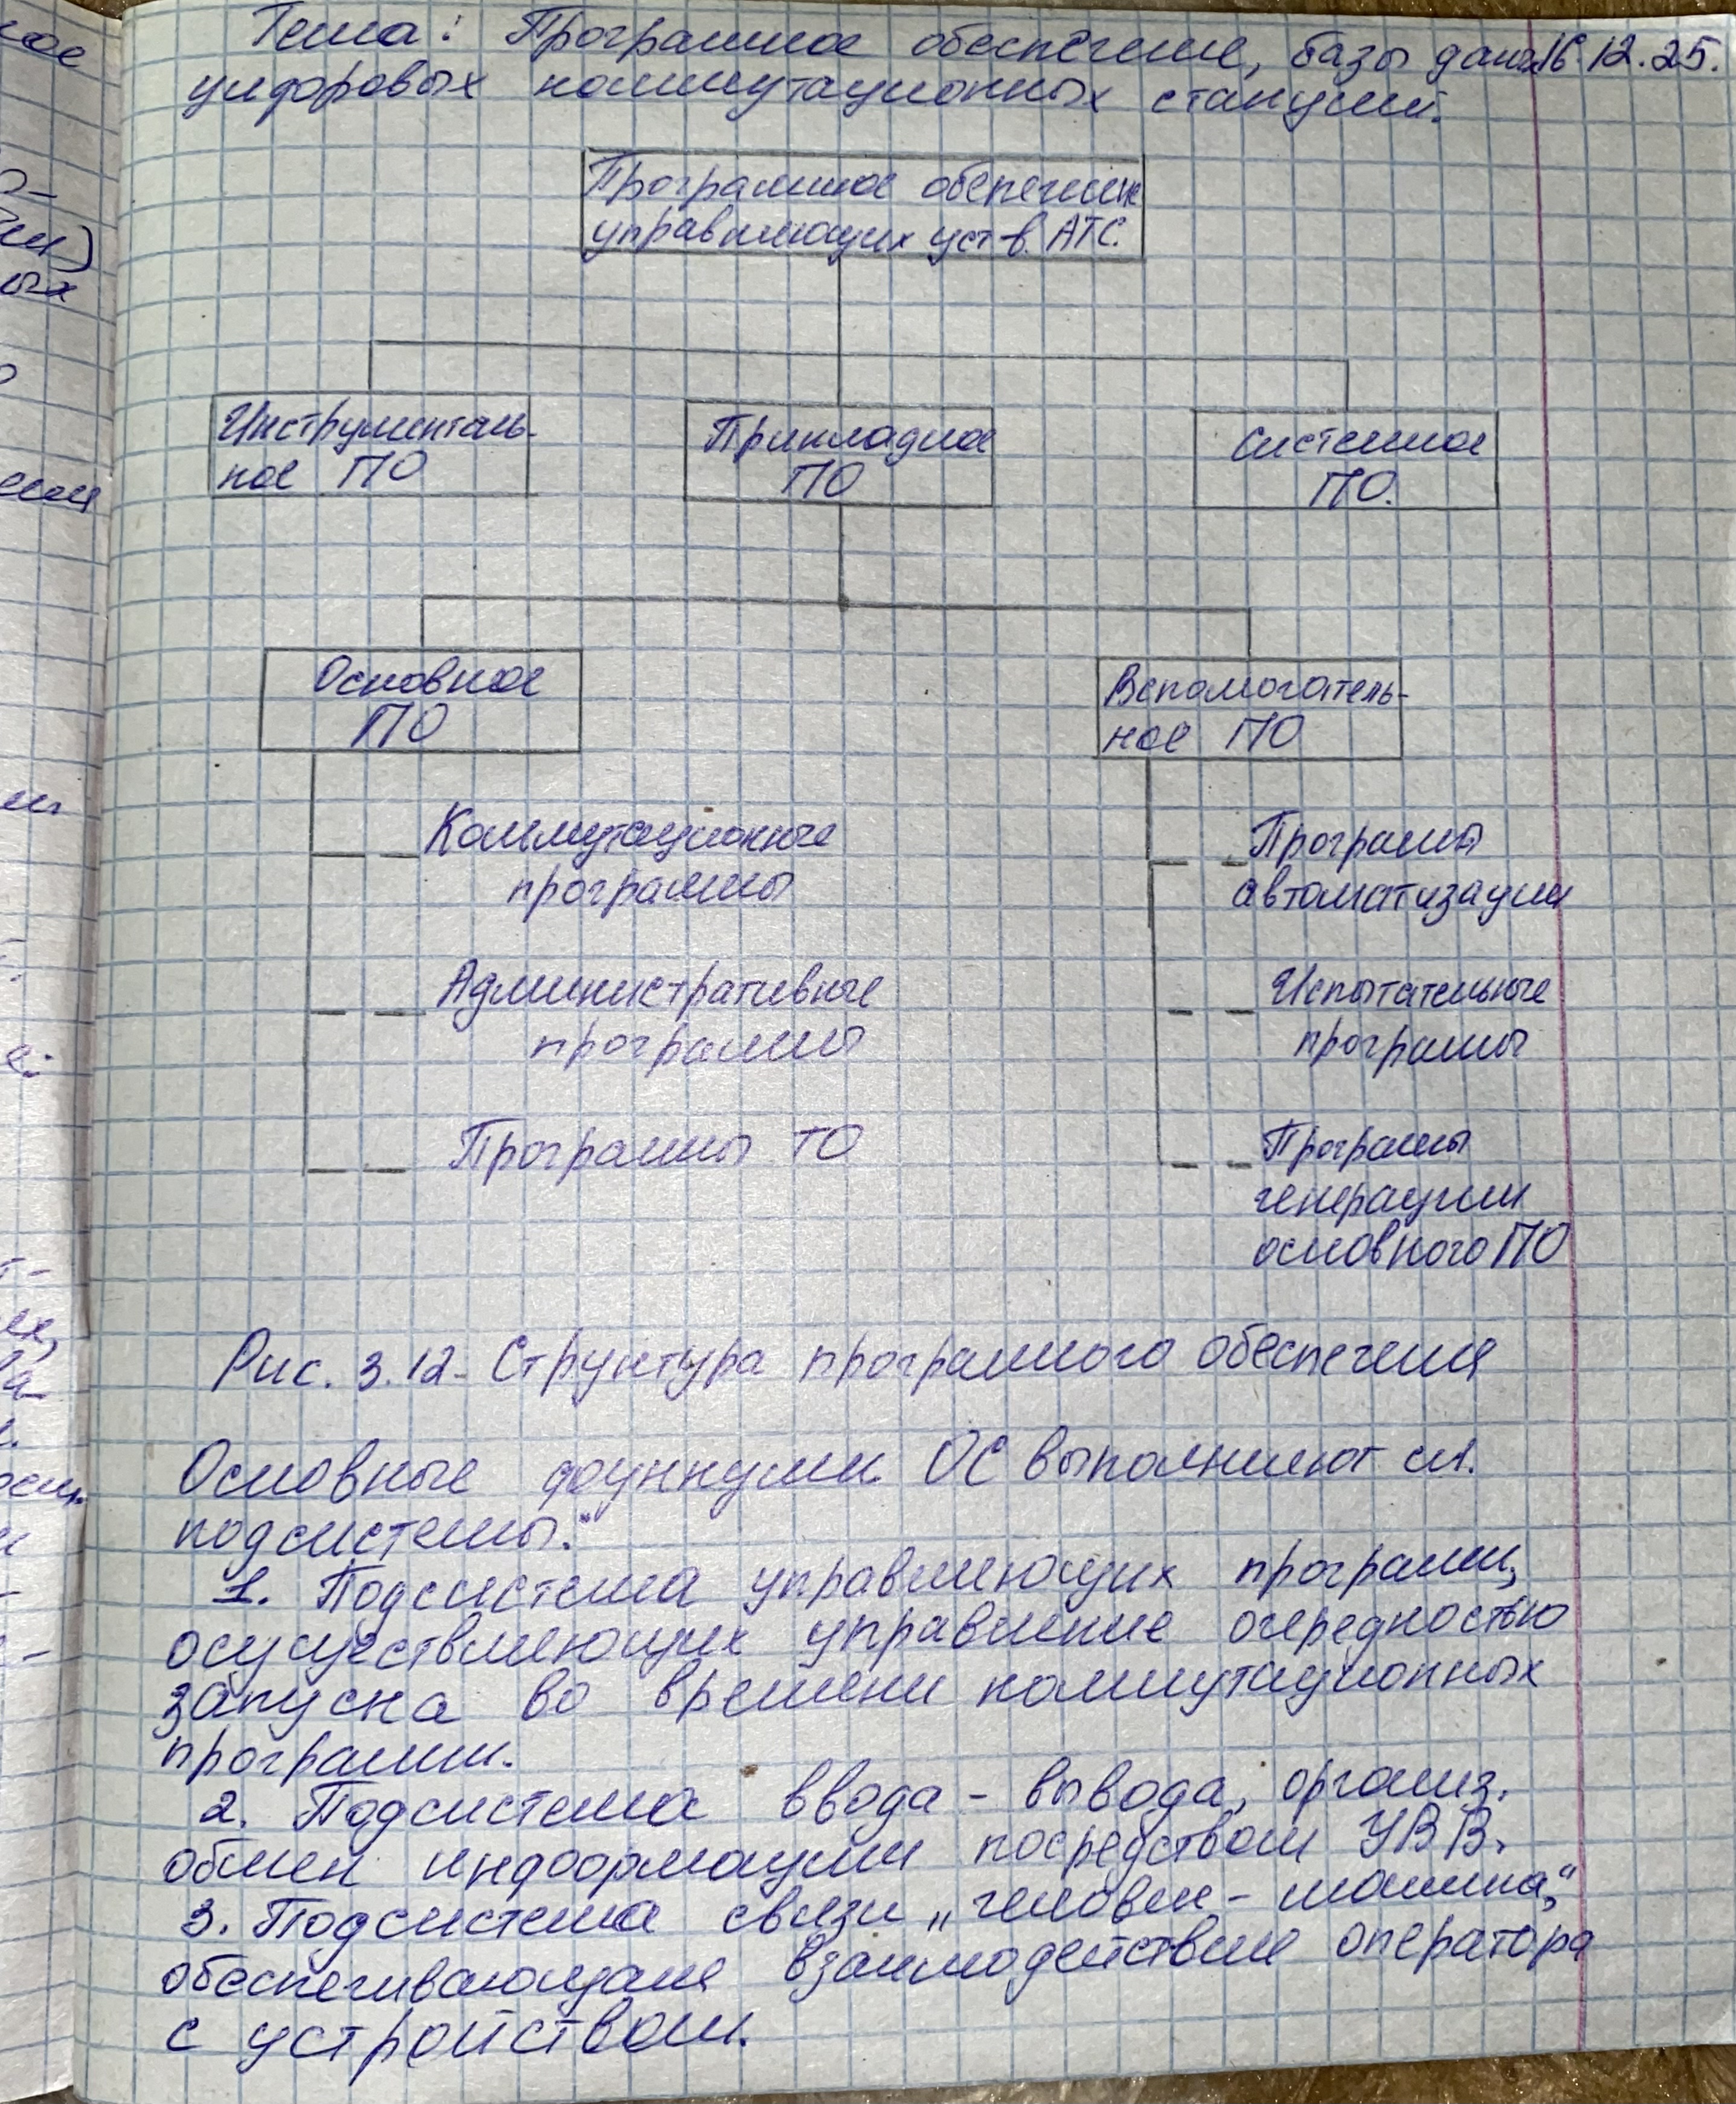 Тема: Програмное обеспечение, базы даных 16.12.25.
цифоровых коммутационных станций.
Програмное обепечение
управляющих уст-в. АТС.
Инструменталь-
ное ПО
Прикладное
ПО
Системное
ПО.
Основное
ПО
Вспомогатель-
ное ПО
Коммутационные
программы
Програмы
автоматизации
Административные
программы
Испытательные
програмы
Програмы ТО
Програмы
генерации
основного ПО
Рис. 3.12. Структура програмного обеспечения
Основные функции ОС выполняют сл.
подсистемы:
1. Подсистема управляющих программ,
осуществляющих управление очередностью
запуска во времени коммутационных
программ.
2. Подсистема ввода - вывода, организ.
обмен информации посредством УВВ.
3. Подсистема связи „человек - машина,“
обеспечивающая взаимодействие оператора
с устройством.